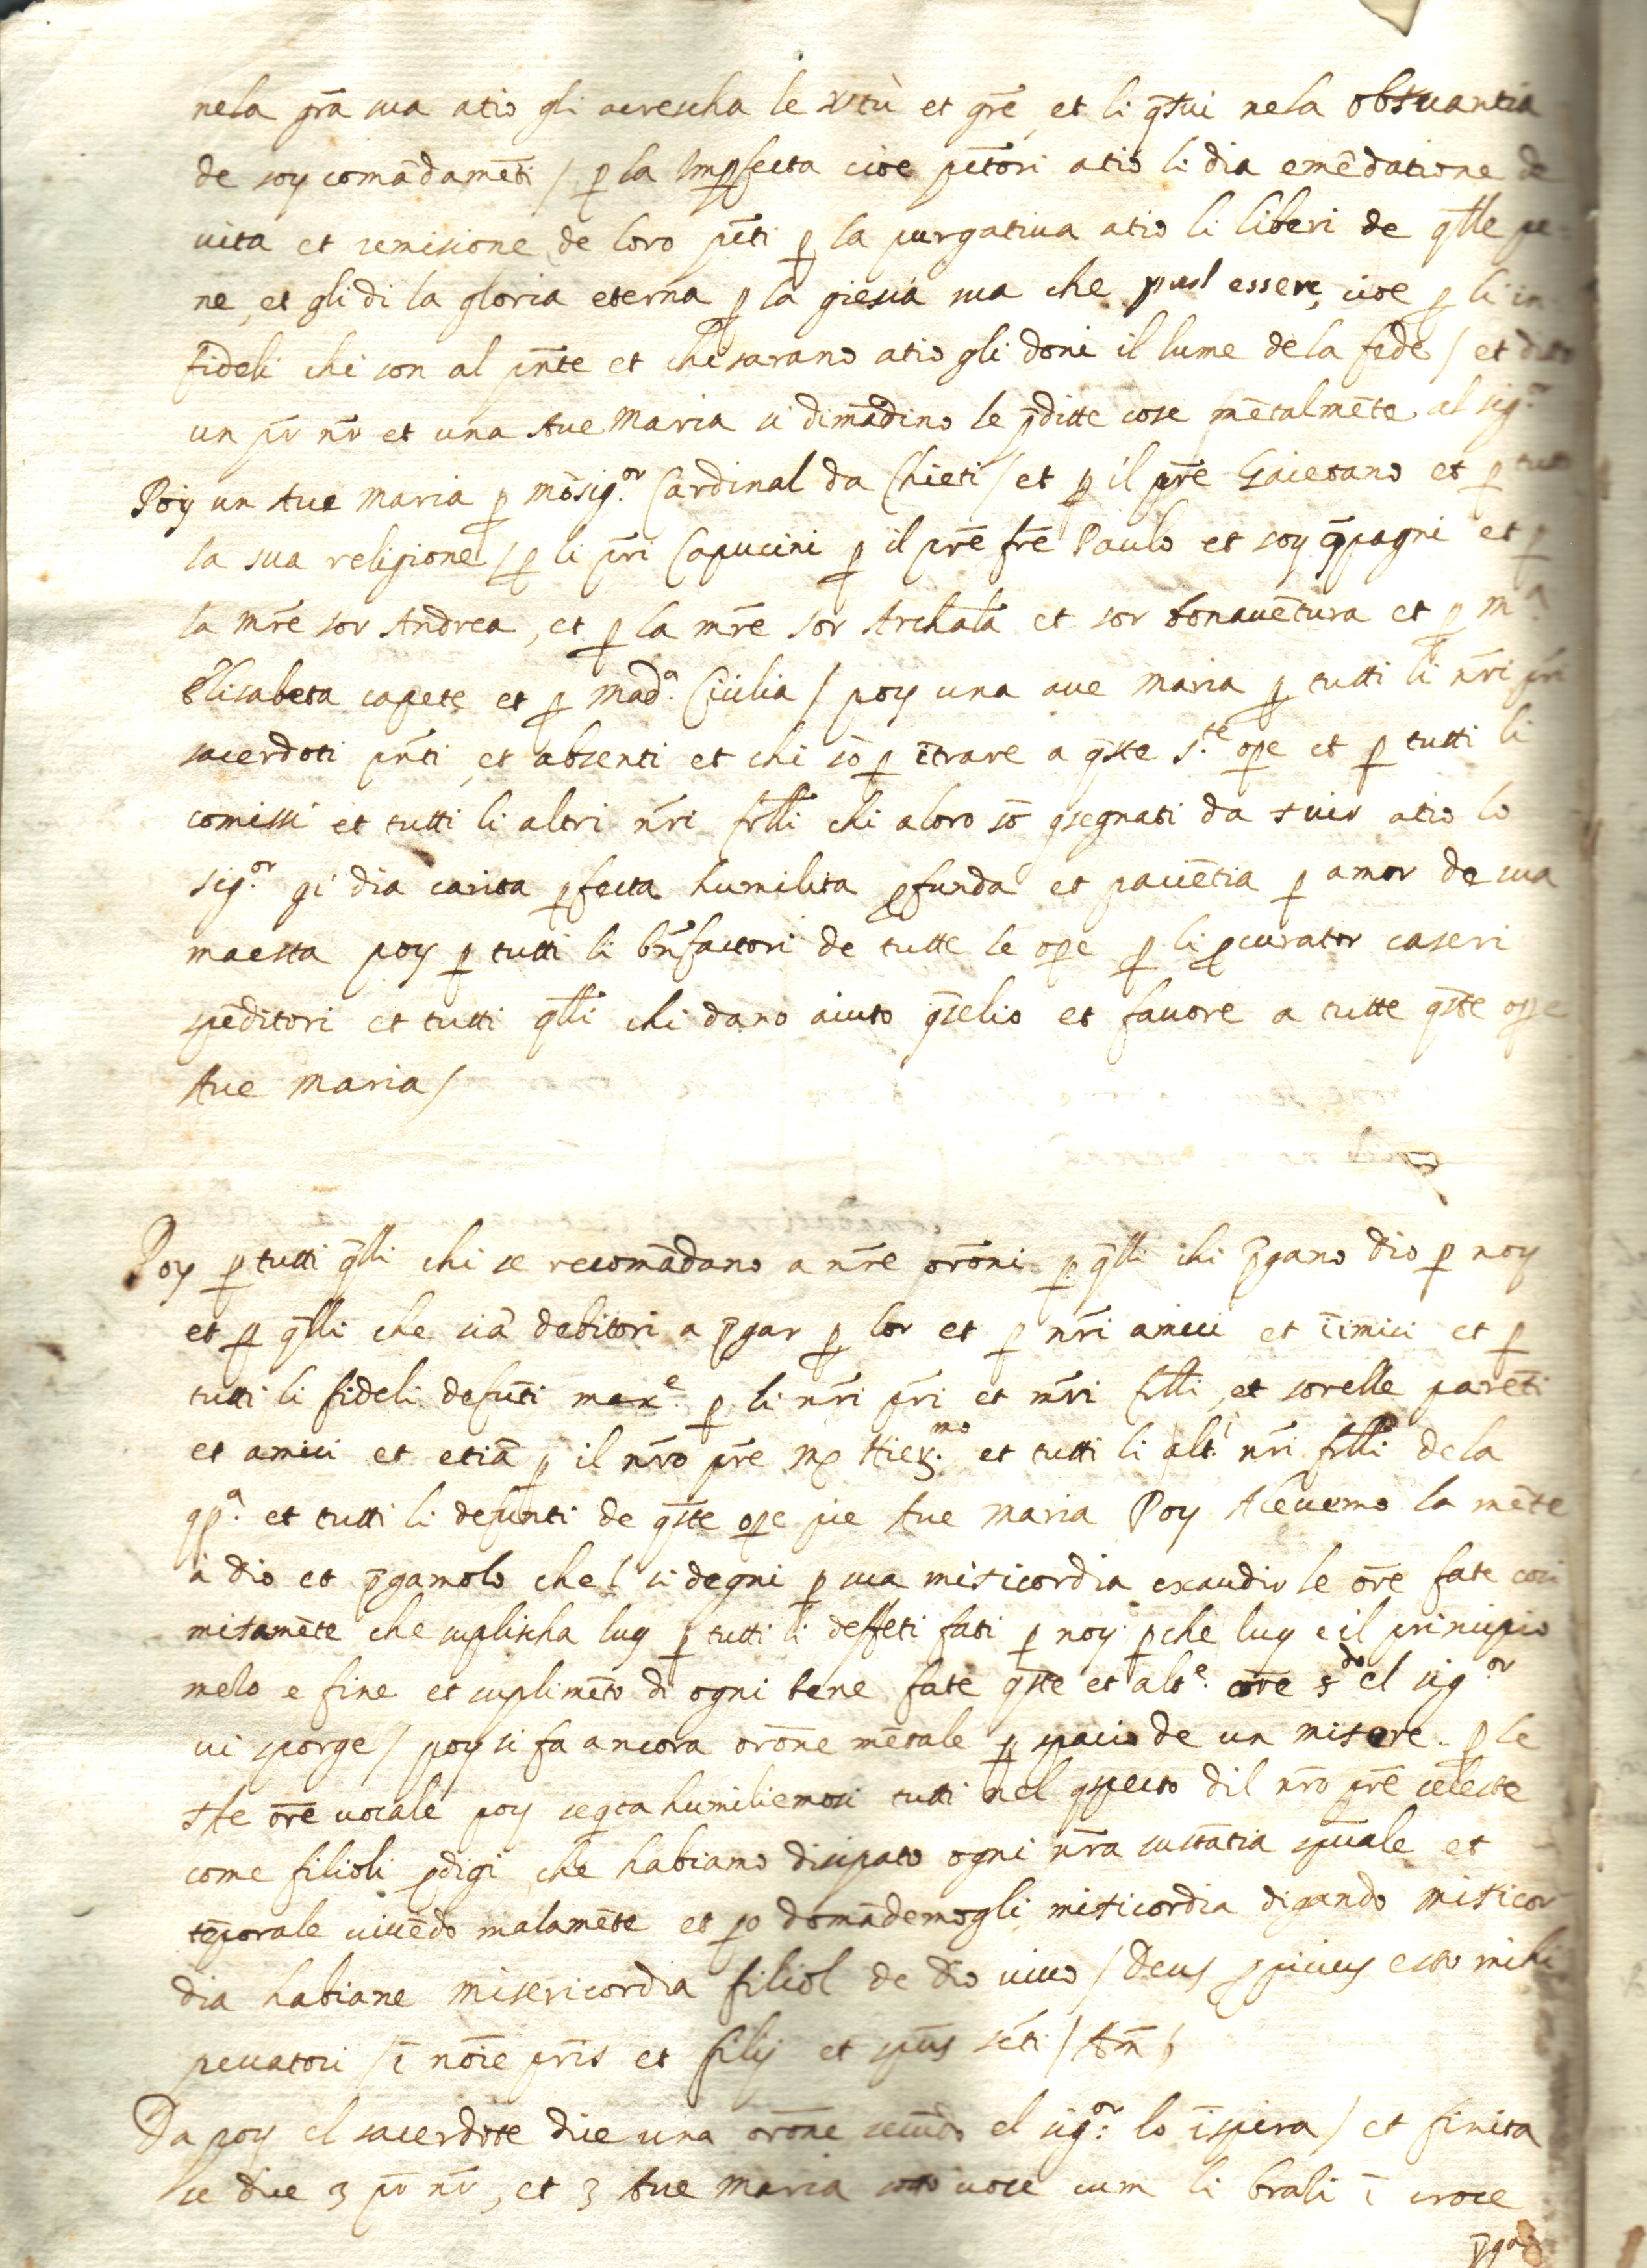 nela grā sua atiò gli acrescha le vtù et grē, et li gstui nela obsuantia
de soy comādamēti / p la Impfecta cioe pctōri atiò li dia emēdatione de
uita et remisione de loro pcti p la purgatiua atiò li liberi de qlle pe
ne, et gli di la gloria eterna p la giesia sua che puol essere, cioe p li in
fideli chi son al pnte et chi sarano atiò gli doni il lume dela fede / et ditto
un pr nr et una Aue Maria si dimādino le pditte cose mētalmēte al sig.r
Poy un Aue Maria p mōsig.or Cardinal da Chieti / et p il prē Gaietano et p tutta
la sua religione / p li pri Capucini p il prē frē Paulo et soy qpagni et p
la mrē sor Andrea, et p la mrē sor Archāla et sor bonauētura et p m.a
Elisabeta capete et p mad.a Cicilia / poy una aue maria p tutti li nri pri
sacerdoti pnti et absenti et chi sō p ītrare a qste s.te ope et p tutti li
comissi et tutti li altri nri frlli chi a loro sō qsegnati da suir atiò lo
sig.or gi dia carita pfecta humilita pfunda et paciētia p amor de sua
maesta poy p tutti li bnfactori de tutte le ope p li pcurator caseri
spēditori et tutti qlli chi dano aiuto qselio et fauore a tutte qste ope
Aue Maria /
Poy p tutti qlli chi se recomādano a nrē orōni p qlli chi pgano dio p noy
et p qlli che siā debitori a pgar p lor et p nri amici et īimici et p
tutti li fideli defūti max.e p li nri pri et mri frlli, et sorelle parēti
et amici et etiā p il nrō prē mp Hier.mo et tutti li alt.i nri frlli dela
qp.a et tutti li defunti de qste ope pie Aue Maria Poy Aleuemo la mēte
a dio et pgamolo chel si degni p sua misicordia exaudir le orē fate cosi
mitamēte che suplischa luy p tutti li deffeti fati p noy pche luy e il principio
melo e fine et suplimēto di ogni bene fate qste et alt.e orē s.do el sig.or
ui sporge / poy si fa ancora orōne mētale p spacio de un misere. p le
ste orē uocale poy seqta humiliemosi tutti nel qspecto dil nrō prē celeste
come filioli pdigi che habiamo disipato ogni nra sustātia spuale et
tēporale uiuēdo malamēte et po domādemogli misicordia digando misicor
dia habiane misericordia filiol de dio uiuo / Deus ppicius esto mihi
peccatori / ī noīe pris et filij et spus scti / Am /
Da poy el sacerdote dice una orōne secūdo el sig.or lo īspira / et finita
se dice 3 pr nr, et 3 Aue Maria soto uoce cum li brali ī croce
pgādo